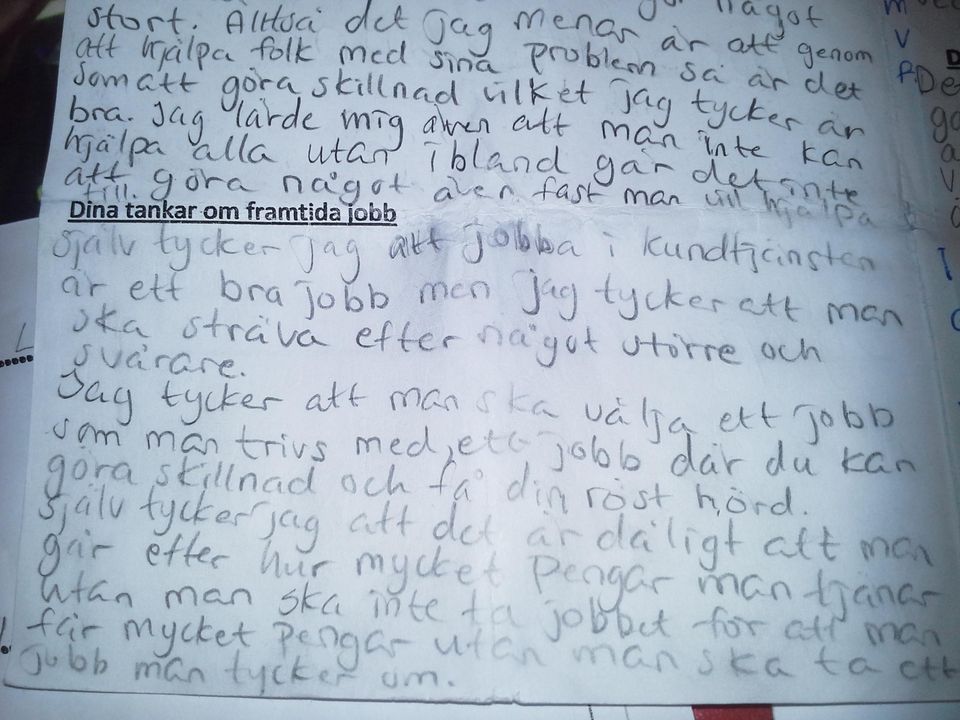 gör något
stort. Alltså det jag menar är att genom
att hjälpa folk med sina problem så är det
som att göra skillnad vilket jag tycker är
bra. Jag lärde mig även att man inte kan
hjälpa alla utan ibland går det inte
att göra något även fast man vill hjälpa
till.
Dina tankar om framtida jobb
själv tycker jag att jobba i kundtjänsten
är ett bra jobb men jag tycker att man
ska sträva efter något större och
svårare.
Jag tycker att man ska välja ett jobb
som man trivs med, ett jobb där du kan
göra skillnad och få din röst hörd.
själv tycker jag att det är dåligt att man
går efter hur mycket pengar man tjänar
utan man ska inte ta jobbet för att man
får mycket pengar utan man ska ta ett
jobb man tycker om.